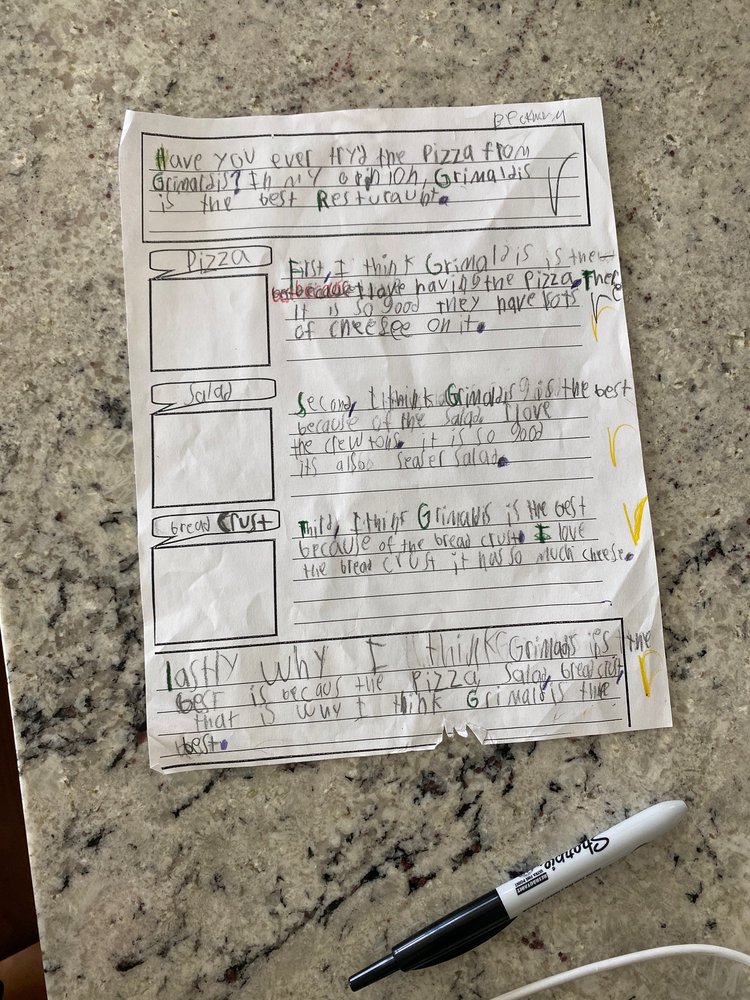 Beckham
Have you ever try'd the Pizza from
Grimaldis? In my opinion, Grimaldis
is the best Resturaunt.
Pizza
First, I think Grimaldis is the
best because I love having the Pizza. There
it is so good they have lots
of cheesee on it.
Salad
Second, I think Grimaldis is the best
because of the Salad. I love
the crewtons. it is so good
its also seaser salad.
bread Crust
Third, I think Grimaldis is the best
because of the bread crust. I love
the bread crust it has so much cheese.
lastly why I think Grimaldis is the
best is becaus the Pizza, Salad, bread crust,
that is why I think Grimaldis the
best.
Sharpie